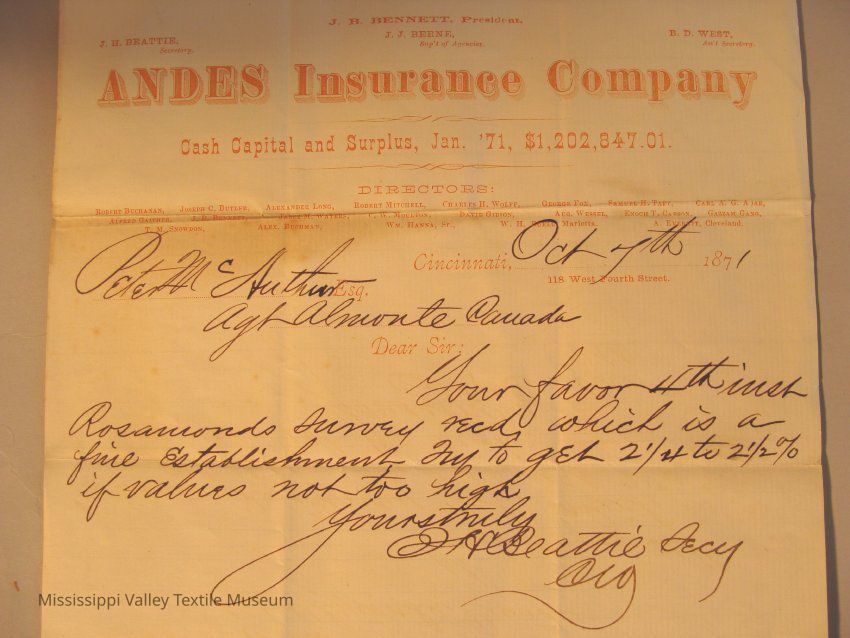 J. B. BENNETT, President.
J. H. BEATTIE,
Secretary.
J. J. BERNE,
Sup't of Agencies.
B. D. WEST,
Ass't Secretary.
ANDES Insurance Company
Cash Capital and Surplus, Jan. '71, $1,202,847.01.
DIRECTORS:
ROBERT BUCHANAN, JOSEPH C. BUTLER, ALEXANDER LONG, ROBERT MITCHELL, CHARLES H. WOLFF, GEORGE FOX, SAMUEL H. TAFT, CARL A. G. ADAE,
ALFRED GAITHER, J. B. BENNETT, JAMES M. WATERS, C. W. MOULTON, DAVID GIBSON, AUG. WESSEL, ENOCH T. CARSON, GAZZAM GANO,
T. M. SNOWDON, ALEX. BUCHMAN, WM. HANNA, Sr., W. H. Marietta, A. EVERETT, Cleveland.
Cincinnati, Oct 7th 1871
118 West Fourth Street.
Peter Mc Arthur Esq.
Agt Almonte Canada
Dear Sir:
Your favor 4th inst
Rosamonds Survey recd, which is a
fine Establishment Try to get 2 1/4 to 2 1/2 %
if values not too high
Yours truly
J H Beattie Secy
Mississippi Valley Textile Museum